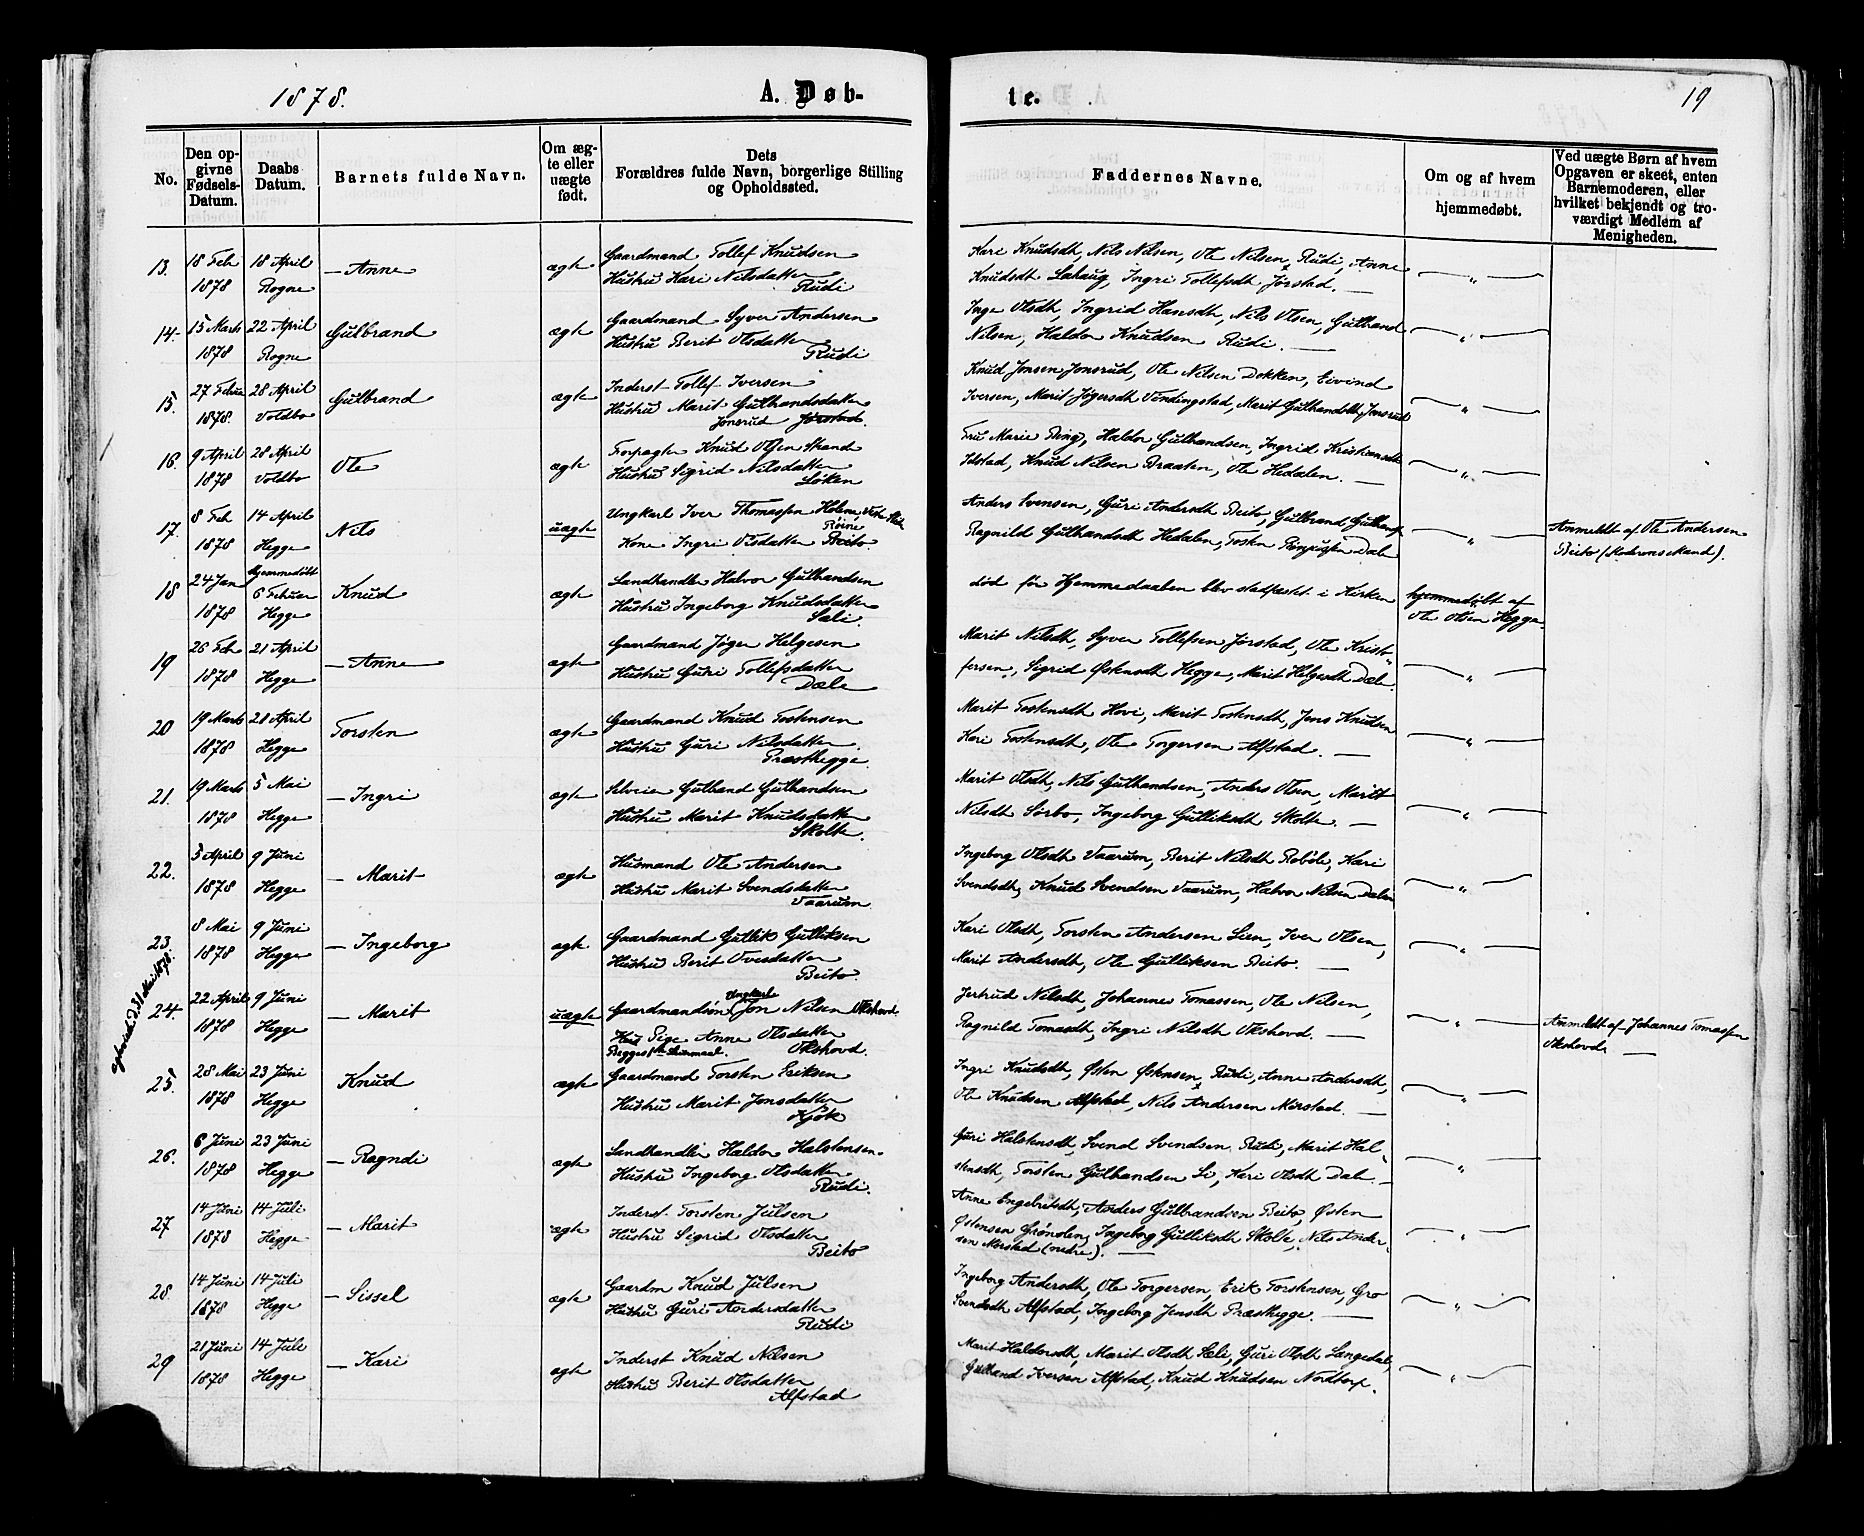 1878.
A. Døb-
te.
19
No.
Den op-
givne
Fødsels-
Datum.
Daabs
Datum.
Barnets fulde Navn.
Om æg-
te eller
uægte
født.
Dets
Forældres fulde Navn, borgerlige Stilling
og Opholdssted.
Faddernes Navne.
Om og af hvem
hjemmedøbt.
Ved uægte Børn af hvem
Opgaven er skeet, enten
Barnemoderen, eller
hvilket bekjendt og tro-
værdigt Medlem af
Menigheden.
13. 18 Feb 1878 18 April Rogne — Anne ægte
Gaardmand Tollef Knudsen
Hustru Kari Nilsdatter
Rudi
Kari Knudsdt, Nils Nilsen, Ole Nilsen Rudi, Anne
Knudsdt Lahaug, Ingri Tollefsdt, Jørstad. —
14. 15 Marts 1878 22 April Rogne Gulbrand ægte
Gaardmand Syver Andersen
Hustru Berit Olsdatter
Rudi
Inge Olsdt, Ingrid Hansdt, Nils Olsen, Gulbrand
Nilsen, Haldor Knudsen Rudi. —
15. 27 Februar 1878. 28 April Voldbo Gulbrand ægte
Inderst Tollef Iversen
Hustru Marit Gulbrandsdatter
Jonsrud Jørstad.
Knud Jonsen Jonsrud, Ole Nilsen Dokken, Eivind
Iversen, Marit Jøgersdt Vindingstad, Marit Gulbrandsdt, Jonsrud
16. 9 April 1878 28 April Voldbo Ole ægte
Forpagter Knud Olsen Strand
Hustru Sigrid Nilsdatter
Løken
Fru Marie Ring, Haldor Gulbrandsen, Ingrid Kristiansdt
Idstad, Knud Nilsen Braaten, Ole Hedalen. —
17. 8 Feb 1878 14 April Hegge Nils uægte
Ungkarl Iver Thomassen Holene,
Kone Ingri Olsdatter Beito.
Anders Evensen, Guri Andersdt Beito, Gulbrand Gulbrands.
Ragnild Gulbrandsdt Hedalen, Dale
Anmeldt af Ole Andersen
Beito (Moderens Mand).
18 24 Jan 1878 hjemmedøbt 6 Februar Hegge Knud ægte
Landhandler Halvor Gulbrandsen
Hustru Ingeborg Knudsdatter
Sæli.
død før Hjemmedaaben blev stadfæstet i Kirken
hjemmedøbt af
Ole Olsen Hegge.
19 26 Feb 1878 21 April Hegge — Anne ægte
Gaardmand Jøger Helgesen
Hustru Guri Tollefsdatter
Dale
Marit Nilsdt, Syver Tollefsen Jørstad, Ole Kristo-
fersen, Sigrid Østensdt Hegge, Marit Helgesdt Dale
20 19 Marts 1878 21 April Hegge Torsten ægte
Gaardmand Knud Tostensen
Hustru Guri Nilsdatter
Præsthegge.
Marit Tostensdt Hovi, Marit Tostensdt, Jens Knudsen
Kari Tostensdt, Ole Torgersen Alfstad. —
21. 19 Marts 1878 5 Mai Hegge — Ingri ægte
Selveier Gulbrand Gulbrandsen
Hustru Marit Knudsdatter
Skolte.
Marit Olsdt, Nils Gulbrandsen, Anders Olsen, Marit
Nilsdt Sørbo, Ingeborg Gulliksdt Skolte. —
22. 5 April 1878 9 Juni Hegge — Marit ægte
Husmand Ole Andersen
Hustru Marit Svendsdatter
Vaarum
Ingeborg Olsdt Vaarum, Berit Nilsdt Robøle, Kari
Svendsdt, Knud Svendsen Vaarum, Halvor Nilsen Dalen
23. 8 Mai 1878 9 Juni Hegge — Ingeborg ægte
Gaardmand Gullik Gulliksen
Hustru Berit Ovesdatter
Beito.
Kari Olsdt, Torsten Andersen Lien, Iver Olsen,
Marit Andersdt, Ole Gulliksen Beito. —
24. 22 April 1878 9 Juni Hegge — Marit uægte
Gaardmandsøn Ungkarl Jon Nilsen Okshovd.
Pige Anne Olsdatter
Okshovd.
Begges 1ste Leiermaal.
Jertrud Nilsdt, Johannes Tomassen, Ole Nilsen,
Ragnild Tomasdt, Ingri Nilsdt Okshovd. —
Anmeldt af Johannes Tomassen
Okshovd. —
25. 28 Mai 1878 23 Juni Hegge Knud ægte
Gaardmand Torsten Eriksen
Hustru Marit Jonsdatter
Kjøk
Ingri Knudsdt, Østen Østensen, Rudi, Anne Andersdt,
Ole Knudsen Alfstad, Nils Andersen Mørstad. —
26. 6 Juni 1878 23 Juni Hegge — Ragndi ægte
Landhandler Haldor Halstensen
Hustru Ingeborg Olsdatter
Rudi.
Guri Halstensdt, Svend Svendsen Rudi, Marit Hal-
stensdt, Torsten Gulbrandsen Li, Kari Olsdt Dale. —
27 14 Juni 1878 14 Juli Hegge — Marit ægte
Inderst Torsten Julsen
Hustru Sigrid Olsdatter
Beito
Anne Engebretsdt, Anders Gulbrandsen Beito, Østen
Østensen Grønolen, Ingeborg Gulliksdt Skolte, Nils Ander-
sen Mørstad (nedre). —
28. 14 Juni 1878 14 Juli Hegge — Sissel ægte
Gaardm Knud Julsen
Hustru Guri Andersdatter
Rudi
Ingeborg Andersdt, Ole Torgersen, Erik Torstensen, Gro
Svendsdt Alfstad, Ingeborg Jensdt Præsthegge. —
29 21 Juni 1878 14 Juli Hegge — Kari ægte
Inderst Knud Nilsen
Hustru Berit Olsdatter
Alfstad
Marit Haldorsdt, Marit Olsdt Sæli, Guri Olsdt Langedal,
Gulbrand Iversen Alfstad, Knud Knudsen Nordtorp.